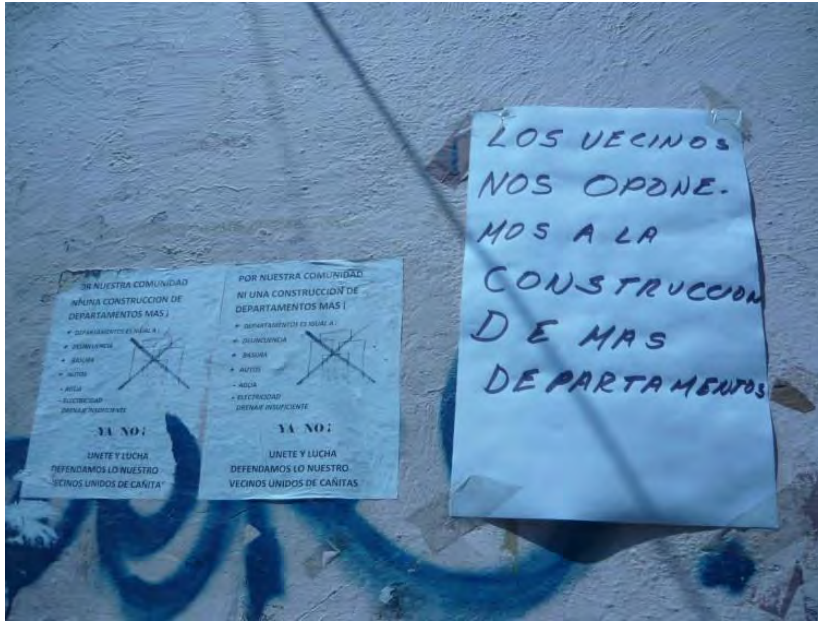 OR NUESTRA COMUNIDAD
NI UNA CONSTRUCCION DE
DEPARTAMENTOS MAS ¡
+ DEPARTAMENTOS ES IGUAL A :
+ DELINCUENCIA
+ BASURA
+ AUTOS
- AGUA
- ELECTRICIDAD
DRENAJE INSUFICIENTE
YA NO ¡
UNETE Y LUCHA
DEFENDAMOS LO NUESTRO
VECINOS UNIDOS DE CAÑITA"
POR NUESTRA COMUNIDAD
NI UNA CONSTRUCCION DE
DEPARTAMENTOS MAS ¡
+ DEPARTAMENTOS ES IGUAL A :
+ DELINCUENCIA
+ BASURA
+ AUTOS
- AGUA
- ELECTRICIDAD
DRENAJE INSUFICIENTE
YA NO ¡
UNETE Y LUCHA
DEFENDAMOS LO NUESTRO
VECINOS UNIDOS DE CAÑITAS
LOS VECINOS
NOS OPONE-
MOS A LA
CONSTRUCCION
DE MAS
DEPARTAMENTOS